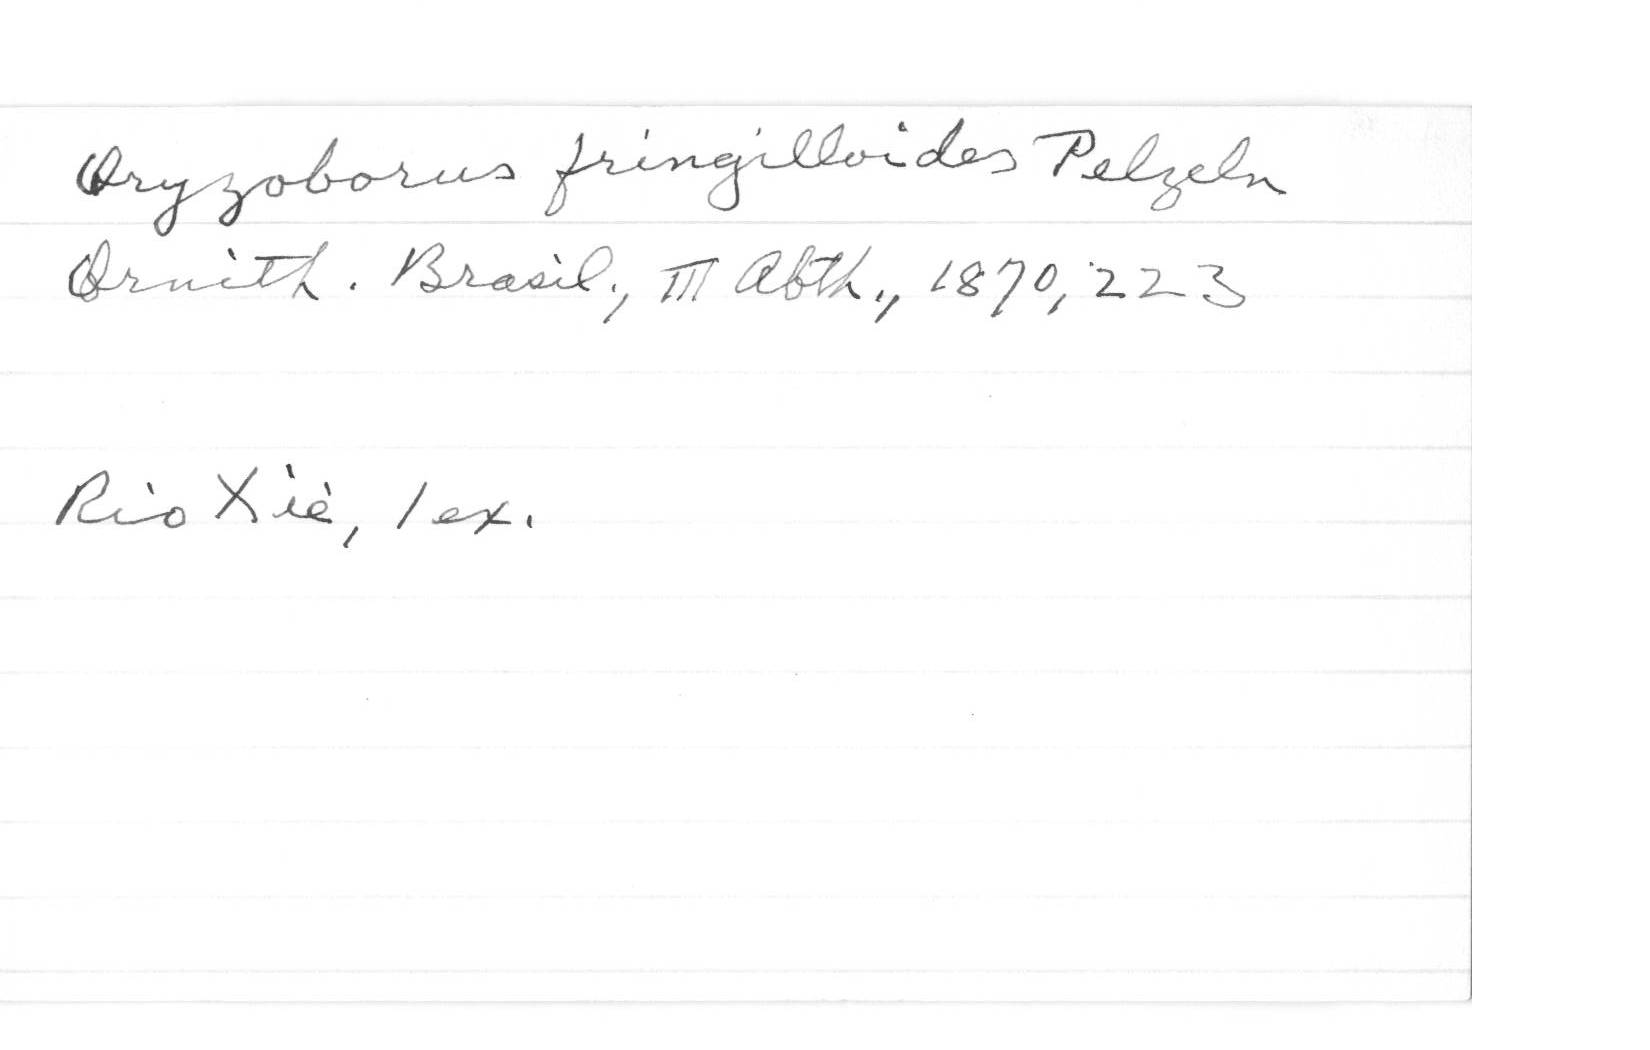 Oryzoborus fringilloides Pelzeln
Ornith. Brasil., III Abth., 1870, 223
Rio Xiè, 1 ex.